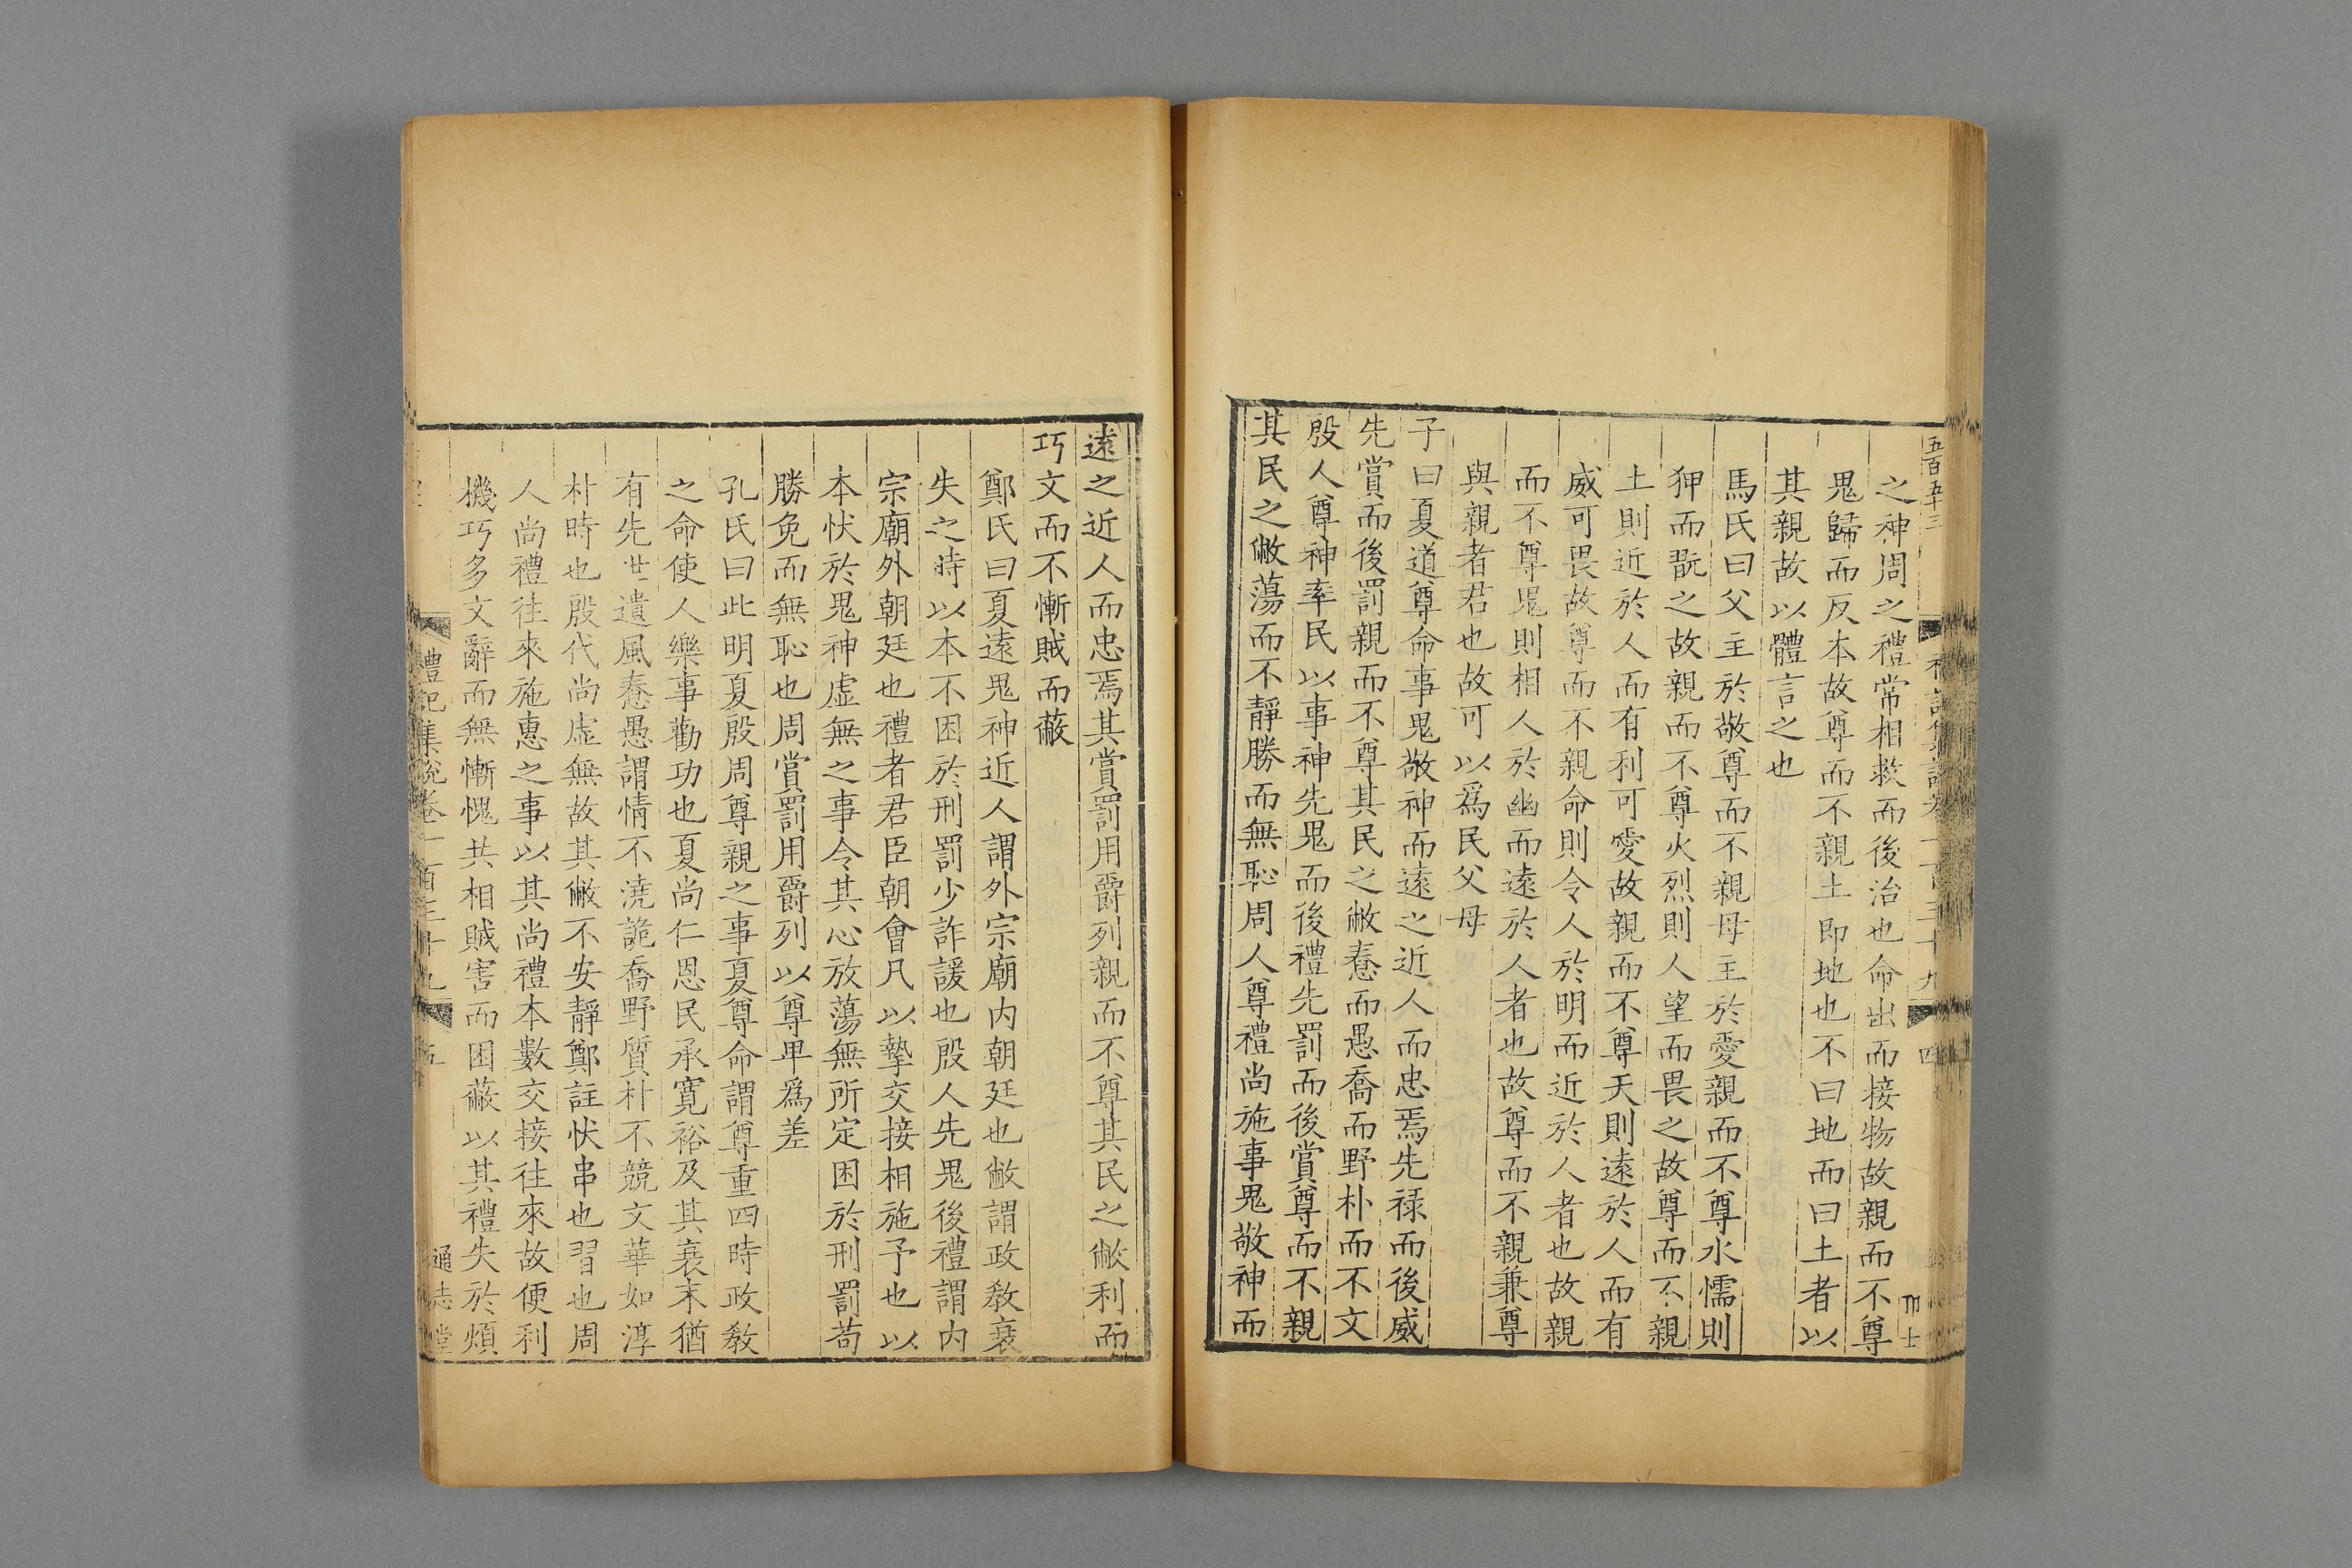 五百五十三
之神周之禮常相救而後治也命出而接物故親而不尊
鬼歸而反本故尊而不親土即地也不曰地而曰土者以
其親故以體言之也
馬氏曰父主於敬尊而不親母主於愛親而不尊水懦則
狎而翫之故親而不尊火烈則人望而畏之故尊而不親
土則近於人而有利可愛故親而不尊天則遠於人而有
威可畏故尊而不親命則令人於明而近於人者也故親
而不尊鬼則相人於幽而遠於人者也故尊而不親兼尊
與親者君也故可以爲民父母
子曰夏道尊命事鬼敬神而遠之近人而忠焉先祿而後威
先賞而後罰親而不尊其民之敝惷而愚喬而野朴而不文
殷人尊神率民以事神先鬼而後禮先罰而後賞尊而不親
其民之敝蕩而不靜勝而無恥周人尊禮尚施事鬼敬神而
遠之近人而忠焉其賞罰用爵列親而不尊其民之敝利而
巧文而不慚賊而蔽
鄭氏曰夏遠鬼神近人謂外宗廟内朝廷也敝謂政敎衰
失之時以本不困於刑罰少詐諼也殷人先鬼後禮謂内
宗廟外朝廷也禮者君臣朝會凡以摯交接相施予也以
本忕於鬼神虚無之事令其心放蕩無所定困於刑罰苟
勝免而無恥也周賞罰用爵列以尊卑爲差
孔氏曰此明夏殷周尊親之事夏尊命謂尊重四時政敎
之命使人樂事勸功也夏尚仁恩民承寬裕及其衰末猶
有先世遺風惷愚謂情不澆詭喬野質朴不競文華如淳
朴時也殷代尚虚無故其敝不安靜鄭註忕串也習也周
人尚禮往來施惠之事以其尚禮本數交接往來故便利
機巧多文辭而無慚愧共相賊害而困蔽以其禮失於煩
禮記集說卷一百三十九 五
通志堂